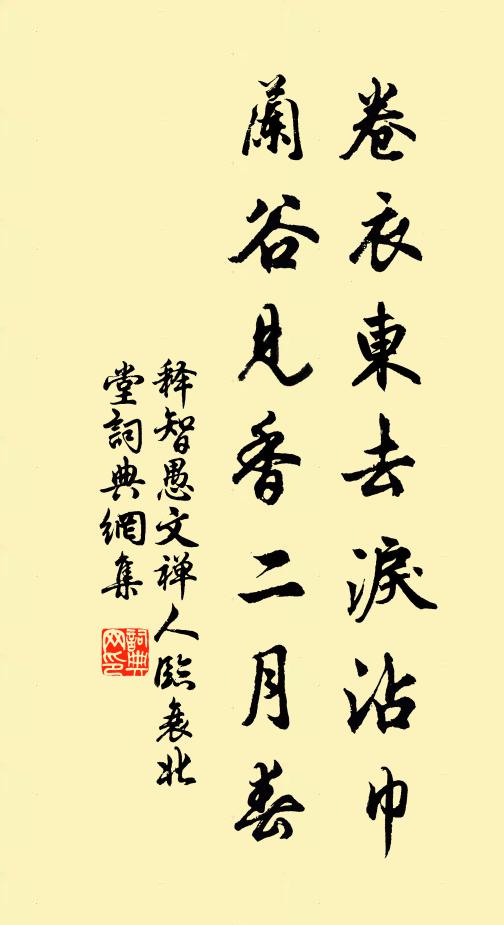 卷衣東去淚沾巾
蘭谷見香二月春
释智愚文禅人臨哀北
堂詞典網集
詞典网印